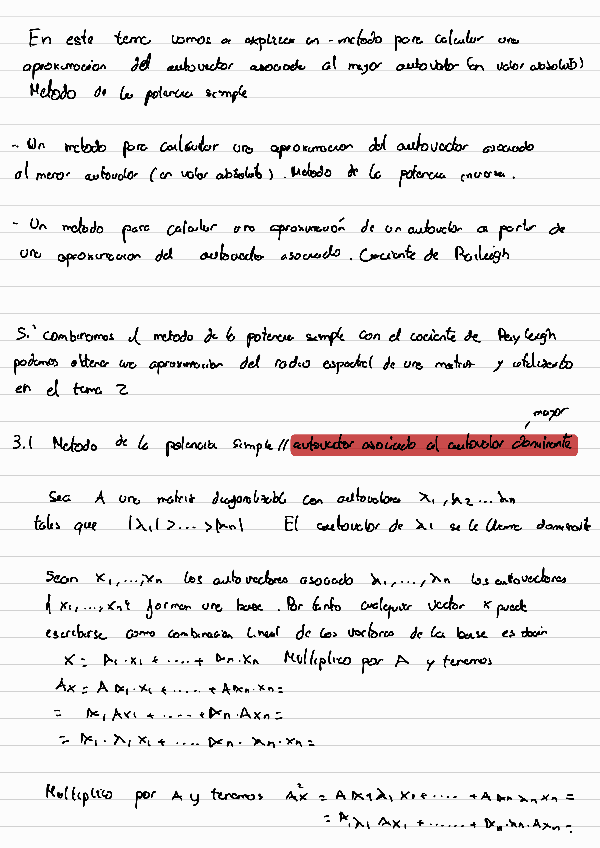 En este tema vamos a explicar un - metodo para calcular una
aproximacion del autovector asociado al mayor autovalor (en valor absoluto)
Metodo de la potencia simple
- Un metodo para calcular una aproximacion del autovector asociado
al menor autovalor (en valor absoluto). Metodo de la potencia inversa.
- Un metodo para calcular una aproximación de un autovalor a partir de
una aproximacion del autovector asociado. Cociente de Rayleigh
Si combinamos el metodo de la potencia simple con el cociente de Rayleigh
podemos obtener una aproximacion del radio espectral de una matriz y utilizarlo
en el tema 2
mayor
3.1 Metodo de la potencia simple // autovector asociado al autovalor dominante
Sea A una matriz diagonalizable con autovalores λ1, λ2 ... λn
tales que |λ1| > ... > |λn| El autovalor de λ1 se le llama dominante
Sean x1, ..., xn los autovectores asociado λ1, ..., λn los autovectores
{x1, ..., xn} forman una base. Por tanto cualquier vector x puede
escribirse como combinacion lineal de los vectores de la base es decir
x = α1·x1 + .... + αn·xn Multiplico por A y tenemos
Ax = Aα1·x1 + ..... + Aαn·xn =
= α1Ax1 + ..... + αn·Axn =
= α1·λ1x1 + .... αn·λn·xn =
Multiplico por A y tenemos A²x = Aα1λ1x1 + .... + Aαnλnxn =
= α1λ1Ax1 + ...... + αn·λn·Axn =